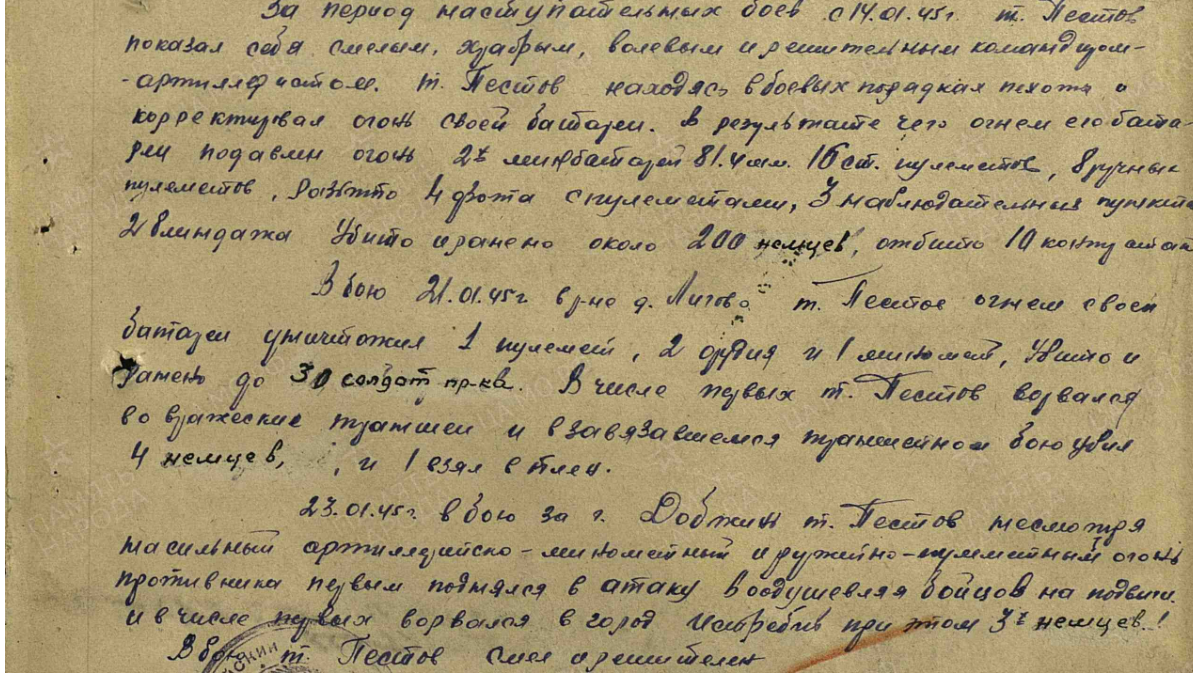 За период наступательных боев с 14.01.45г. т. Пестов
показал себя смелым, храбрым, волевым и решительным командиром-
-артиллеристом. т. Пестов находясь в боевых порядках пехоты и
корректировал огонь своей батареи. В результате чего огнем его бата-
реи подавлен огонь 2х минбатарей 81.4 мм. 16 ст. пулеметов, 8 ручных
пулеметов, Разбито 4 дзота с пулеметами, 3 наблюдательных пункта
2 блиндажа Убито и ранено около 200 немцев, отбито 10 контратак
В бою 21.01.45г. в р-не д. Лигово т. Пестов огнем своей
батареи уничтожил 1 пулемет, 2 орудия и 1 миномет, Убито и
Ранено до 30 солдат пр-ка. В числе первых т. Пестов ворвался
во вражеские траншеи и в завязавшемся траншейном бою убил
4 немцев, , и 1 взял в плен.
23.01.45г. в бою за г. Добжин т. Пестов несмотря
на сильный артиллерийско-минометный и ружейно-пулеметный огонь
противника первым поднялся в атаку воодушевляя бойцов на подвиги.
и в числе первых ворвался в город Истребив при этом 3х немцев.!
В бою т. Пестов смел и решителен